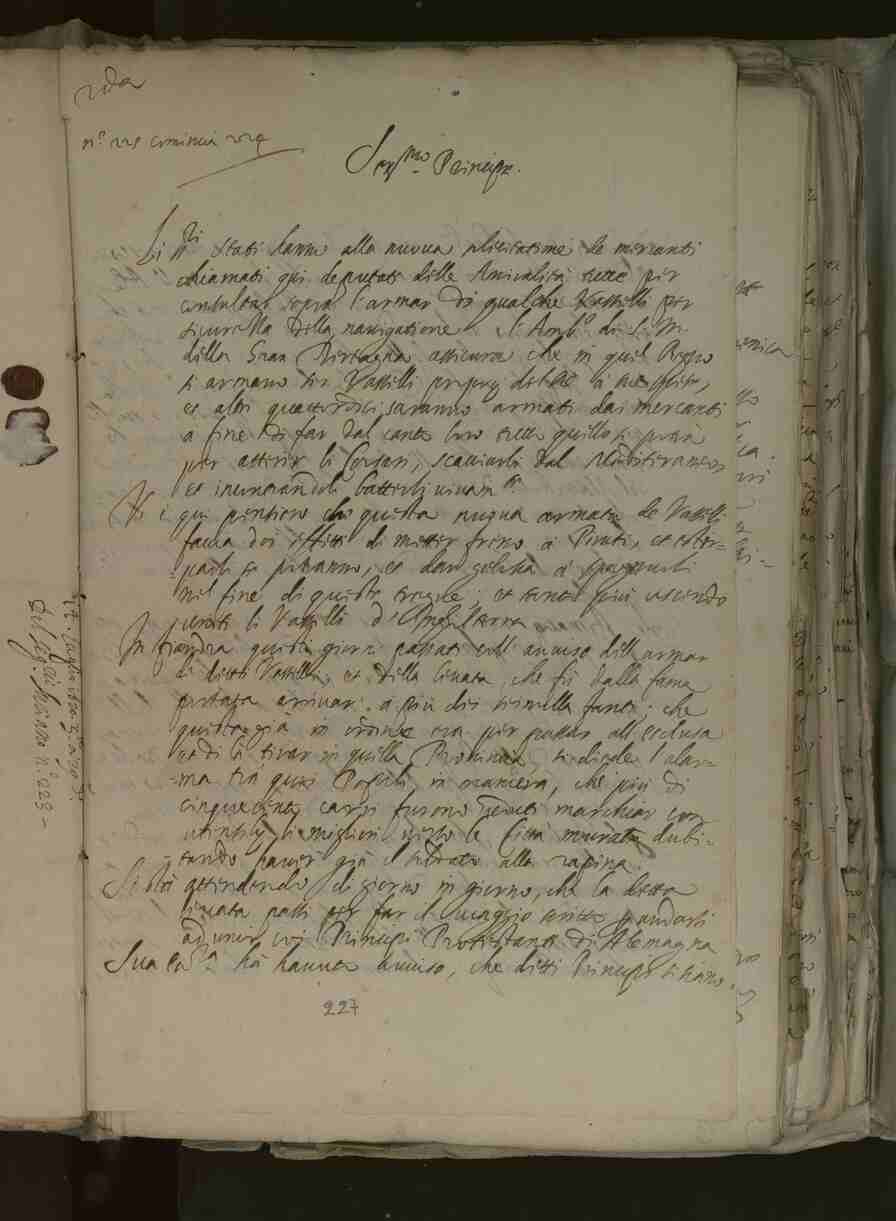 n.º 225 comincia 224
Ser.mo Principe.
Li s.ri Stati hanno alla nuova de mercanti
chiamati qui deputati delle Amiralità tutte per
consultar sopra l'armar di qualche Vasselli per
sicurezza della navigatione. l'Amb.r di S. M.
della Gran Bertagna assicura che in quel Regno
si armano sei Vasselli proprij del Rè a sue spese,
et altri quattordici saranno armati dai mercanti
a fine di far dal canto loro tutto quello si potrà
per atterir li Corsari, scacciarli dal Mediterraneo
et incontrandoli batterli vivam.te
Vi è qui pensiero che questa nuova armata de Vasselli
faccia doi effetti di metter freno a Pirati, et ester-
parli se potranno, et dar gelosia a Spagnuoli
nel fine di queste tregue; et tanto più uscendo
uniti li Vasselli d'Inghilterra
In Fiandra questi giorni passati coll'avviso dell'armar
di detti Vasselli, et della levata, che fù dalla fama
portata arrivar a più di seimilla fanti; che
questa già in ordine era per passar all'esclusa
et di là tirar in quella Provincia, si diede l'alar-
ma trà quei Popoli in maniera, che più di
cinquecento carri furono veduti marchiar con
utensilij, et migliori verso le Città murate dubi-
tando haver già il soldato alla rapina.
Si stà attendendo di giorno in giorno, che la detta
levata passi per far il viaggio scritto, et andarsi
ad unir coi Principi Protestanti di Alemagna
Sua Ecc.a hà havuto avviso, che detti Principi si siano
227
17 Luglio 1620 2.a
del Sig. Suriano n.º 223